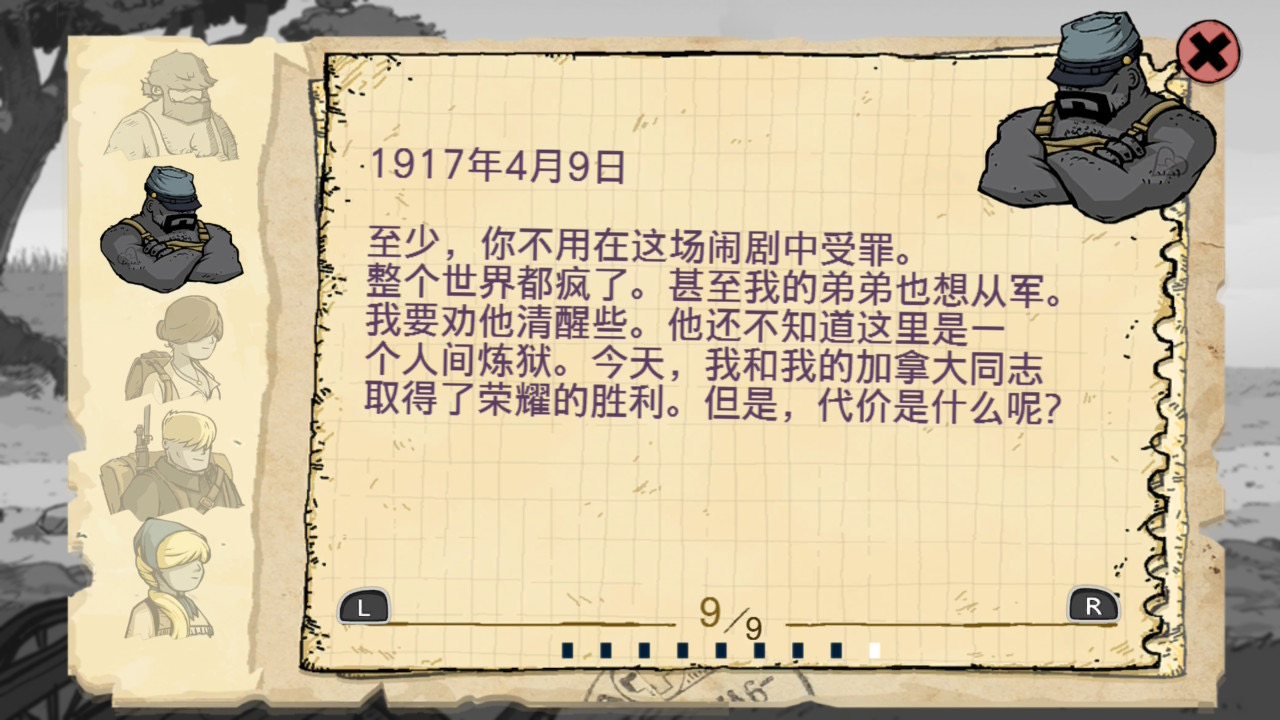 1917年4月9日
至少，你不用在这场闹剧中受罪。
整个世界都疯了。甚至我的弟弟也想从军。
我要劝他清醒些。他还不知道这里是一
个人间炼狱。今天，我和我的加拿大同志
取得了荣耀的胜利。但是，代价是什么呢？
L
R
9/9